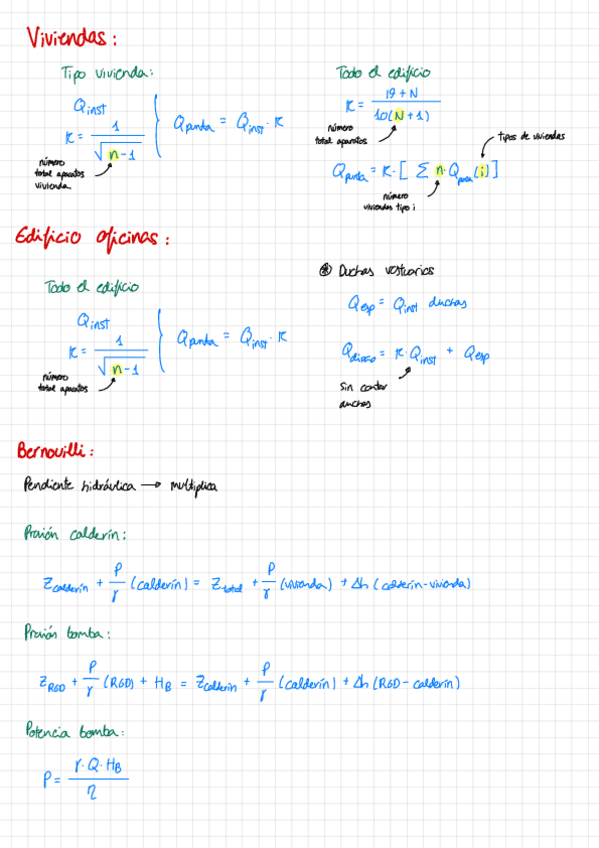 Viviendas:
Tipo vivienda:
Qinst
K = 1 / √(n-1)
número
total aparatos
vivienda
Qpunta = Qinst · K
Todo el edificio
K = (19 + N) / (10(N+1))
número
total aparatos
tipos de viviendas
Qpunta = K · [ Σ n · Qpunta (i) ]
número
viviendas tipo i
Edificio oficinas:
Todo el edificio
Qinst
K = 1 / √(n-1)
número
total aparatos
Qpunta = Qinst · K
⊛ Duchas vestuarios
Qesp = Qinst duchas
Qdiseño = K · Qinst + Qesp
Sin contar
duchas
Bernouilli:
Pendiente hidráulica → multiplica
Presión calderín:
Zcalderín + P/γ (calderín) = Ztotal + P/γ (vivienda) + Δh (calderín-vivienda)
Presión bomba:
ZRGD + P/γ (RGD) + HB = Zcalderín + P/γ (calderín) + Δh (RGD - calderín)
Potencia bomba:
P = γ·Q·HB / η